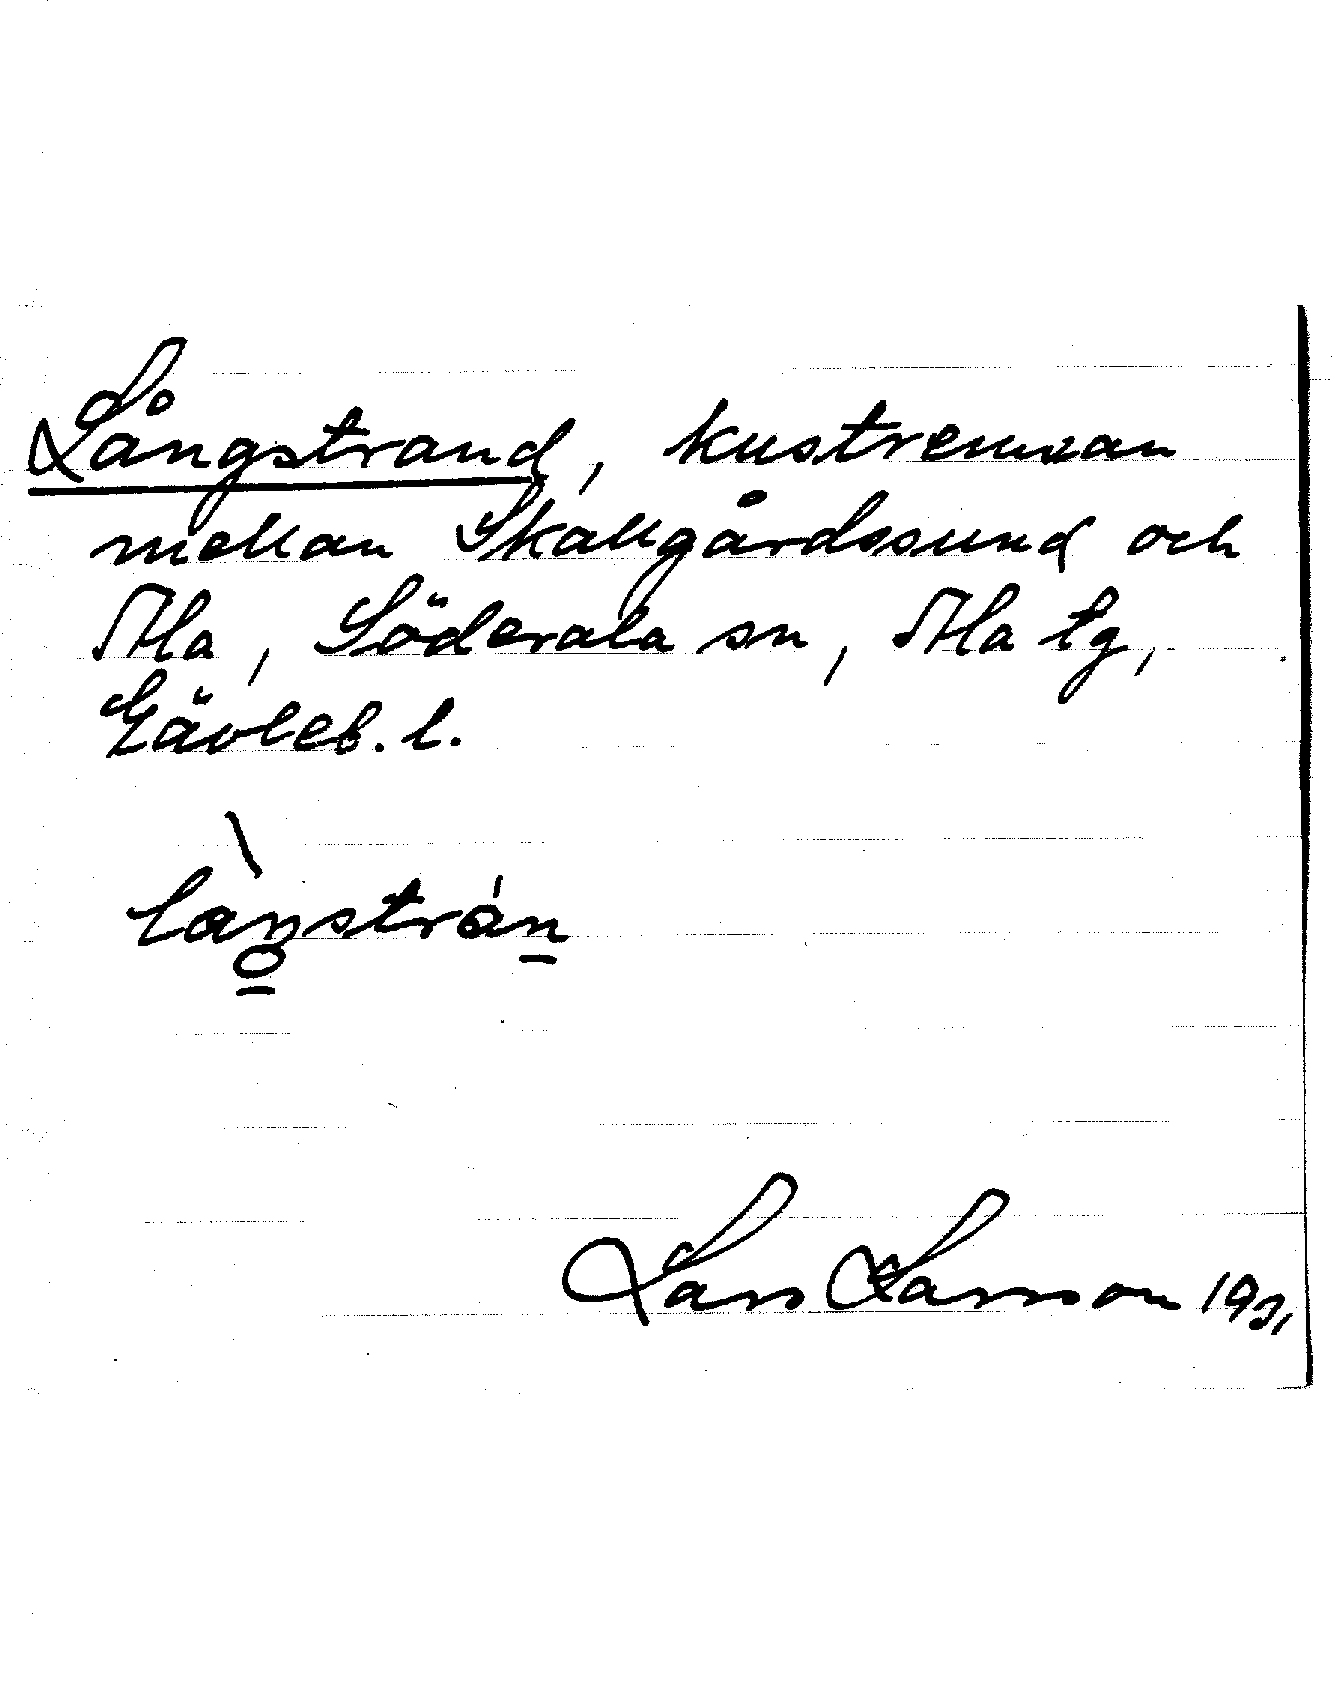 Långstrand, kustremsan
mellan Skallgårdssund och
Ala, Söderala sn, Ala tg,
Gävleb. l.
Lars Larsson